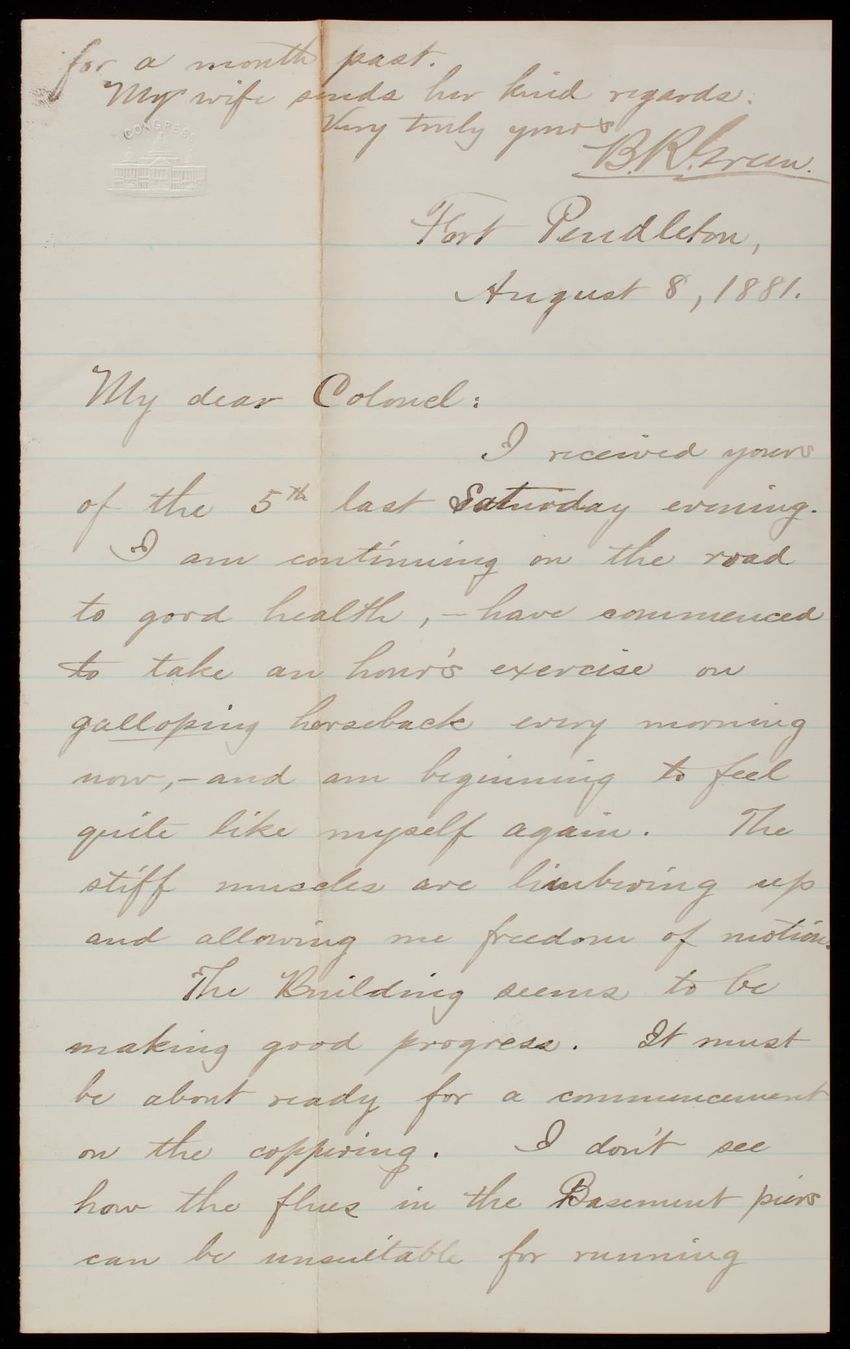 for a month past.
My wife sends her kind regards.
Very truly yours
B.R. Green.
CONGRESS
Fort Pendleton,
August 8, 1881.
My dear Colonel:
I received yours
of the 5th last Saturday evening.
I am continuing on the road
to good health, - have commenced
to take an hour's exercise on
galloping horseback every morning
now, - and am beginning to feel
quite like myself again. The
stiff muscles are limbering up
and allowing me freedom of motion.
The Building seems to be
making good progress. It must
be about ready for a commencement
on the coppering. I don't see
how the flues in the Basement piers
can be unsuitable for running